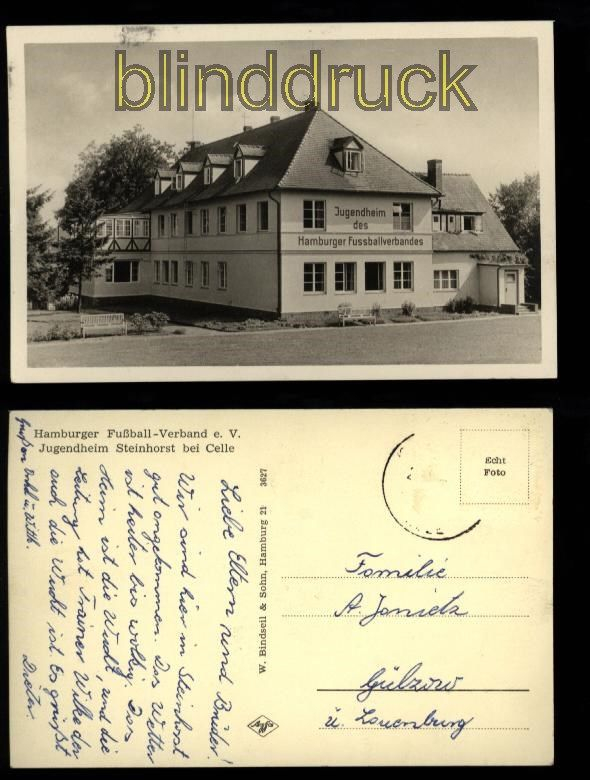 blinddruck
Jugendheim
des
Hamburger Fussballverbandes
Hamburger Fußball-Verband e. V.
Jugendheim Steinhorst bei Celle
Liebe Eltern und Brüder!
Wir sind hier in Steinhorst
gut angekommen. Das Wetter
ist heiter bis wolkig. Das
Heim ist die Wucht, und die
Leitung hat Trainer Wilke der
auch die Wucht ist. Es grüßt
Dieter.
Grüßen
W. Bindseil & Sohn, Hamburg 21 3627
Echt
Foto
Familie
A. Janietz
Gülzow
ü. Lauenburg